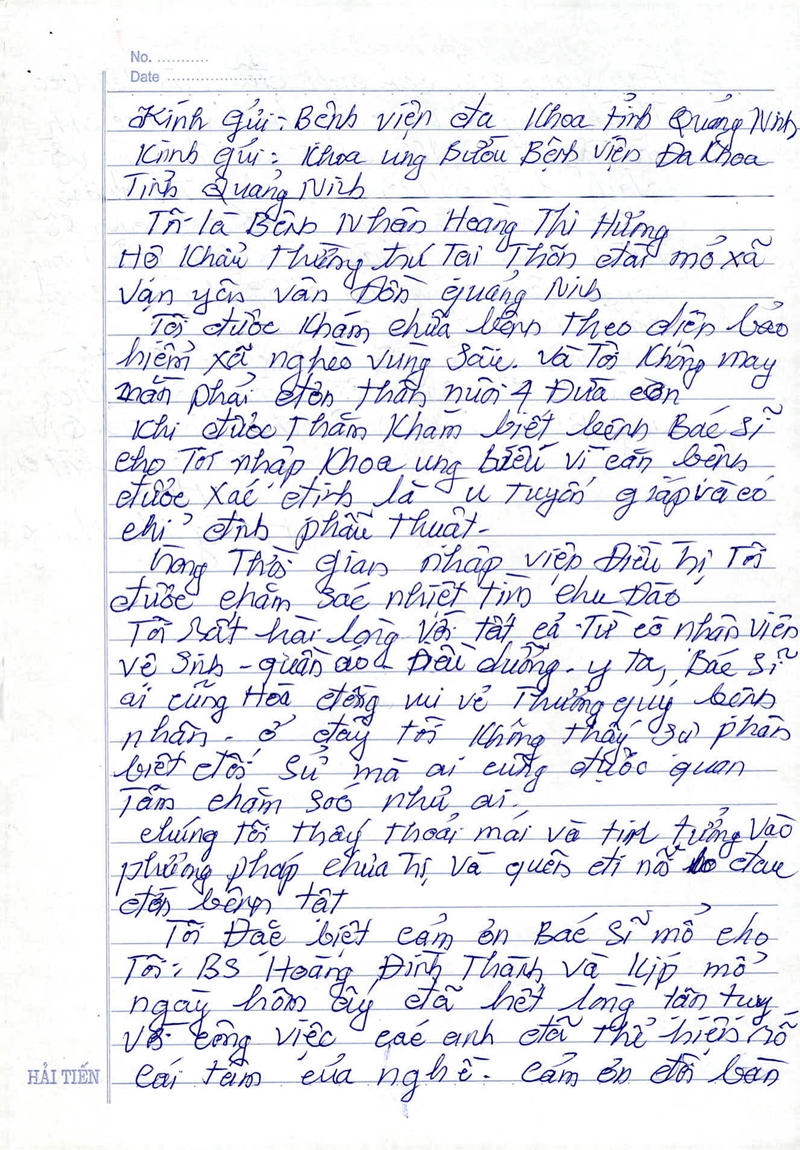 No. ............
Date ........................
Kính gửi: Bệnh viện đa khoa tỉnh Quảng Ninh
Kính gửi: Khoa ung Bướu Bệnh viện Đa Khoa
Tỉnh Quảng Ninh
Tôi là Bệnh Nhân Hoàng Thị Hường
Hộ Khẩu Thường trú Tại Thôn đài mỏ xã
Vạn yên vân Đồn Quảng Ninh
Tôi được Khám chữa bệnh theo diện bảo
hiểm xã nghèo vùng sâu. và Tôi Không may
mắn phải đơn thân nuôi 4 Đứa con
Khi được Thăm Khám biết bệnh Bác sĩ
cho Tôi nhập Khoa ung biếu vì căn bệnh
được xác định là u tuyến giáp và có
chỉ định phẫu thuật.
Trong Thời gian nhập viện Điều trị Tôi
được chăm sóc nhiệt tình chu Đáo
Tôi rất hài lòng với tất cả. Từ cô nhân viên
vệ sinh - quần áo - Điều dưỡng. y tá, Bác sĩ
ai cũng Hoà đồng vui vẻ Thương quý bệnh
nhân. ở đây tôi Không thấy sự phân
biệt đối sử mà ai cũng được quan
Tâm chăm soó như ai.
chúng Tôi thấy thoải mái và tin tưởng vào
phương pháp chữa trị, và quên đi nỗi lo đau
đớn bệnh tật
Tôi Đặc biệt cảm ơn Bác sĩ mổ cho
Tôi: BS Hoàng Đình Thành và Kíp mổ
ngày hôm ấy đã hết lòng tận tụy
với công việc các anh đã thể hiện rõ
cái tâm của nghề. Cảm ơn đôi bàn
HẢI TIẾN